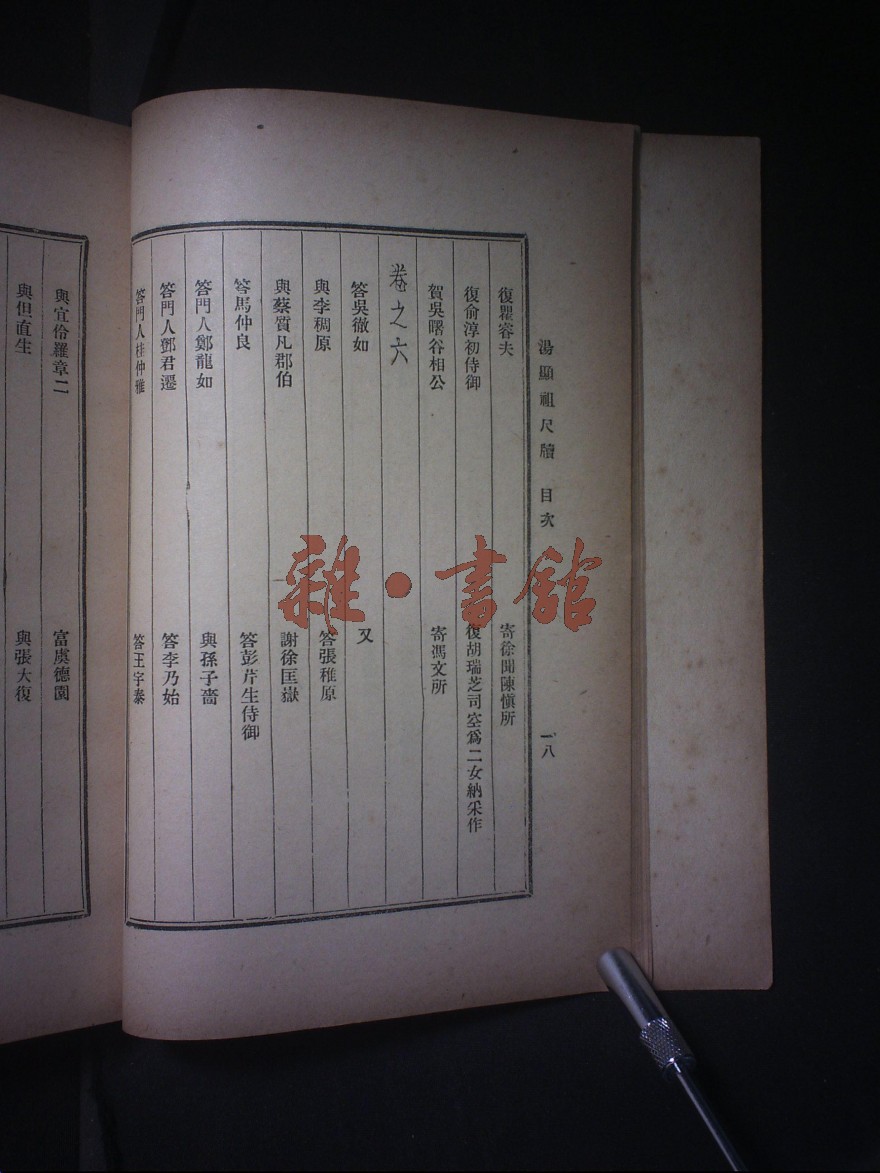 湯顯祖尺牘 目次 一八
復瞿睿夫 寄徐聞陳愼所
復俞淳初侍御 復胡瑞芝司空爲二女納采作
賀吳曙谷相公 寄馮文所
卷之六
答吳徹如 又
與李稠原 答張稚原
與蔡質凡郡伯 謝徐匡嶽
答馬仲良 答彭芹生侍御
答門人鄭龍如 與孫子嗇
答門人鄧君遷 答李乃始
答門人桂仲雅 答王宇泰
與宜伶羅章二 富虞德園
與但直生 與張大復
雜·書館